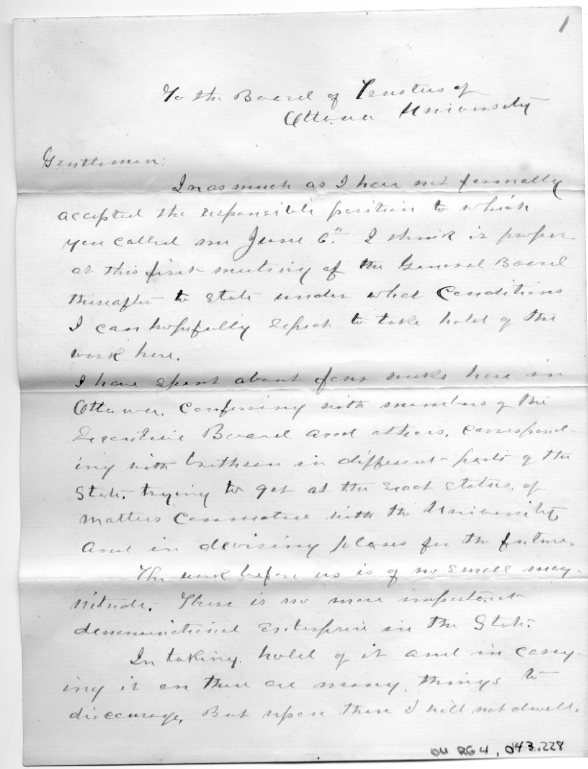 1
To the Board of Trustees of
Ottawa University
Gentlemen:
Inasmuch as I have not formally
accepted the responsible position to which
you called me June 6th I think it proper
at this first meeting of the General Board
thereafter to state under what conditions
I can hopefully expect to take hold of the
work here.
I have spent about four weeks here in
Ottawa, conferring with members of the
Executive Board and others, correspond-
ing with brethren in different parts of the
State, trying to get at the exact status of
matters connected with the University
and in devising plans for the future.
The work before us is of no small mag-
nitude. There is no more important
denominational enterprise in the State.
In taking hold of it and in carry-
ing it on there are many things to
discourage. But upon these I will not dwell.
OU RG4, 043.228